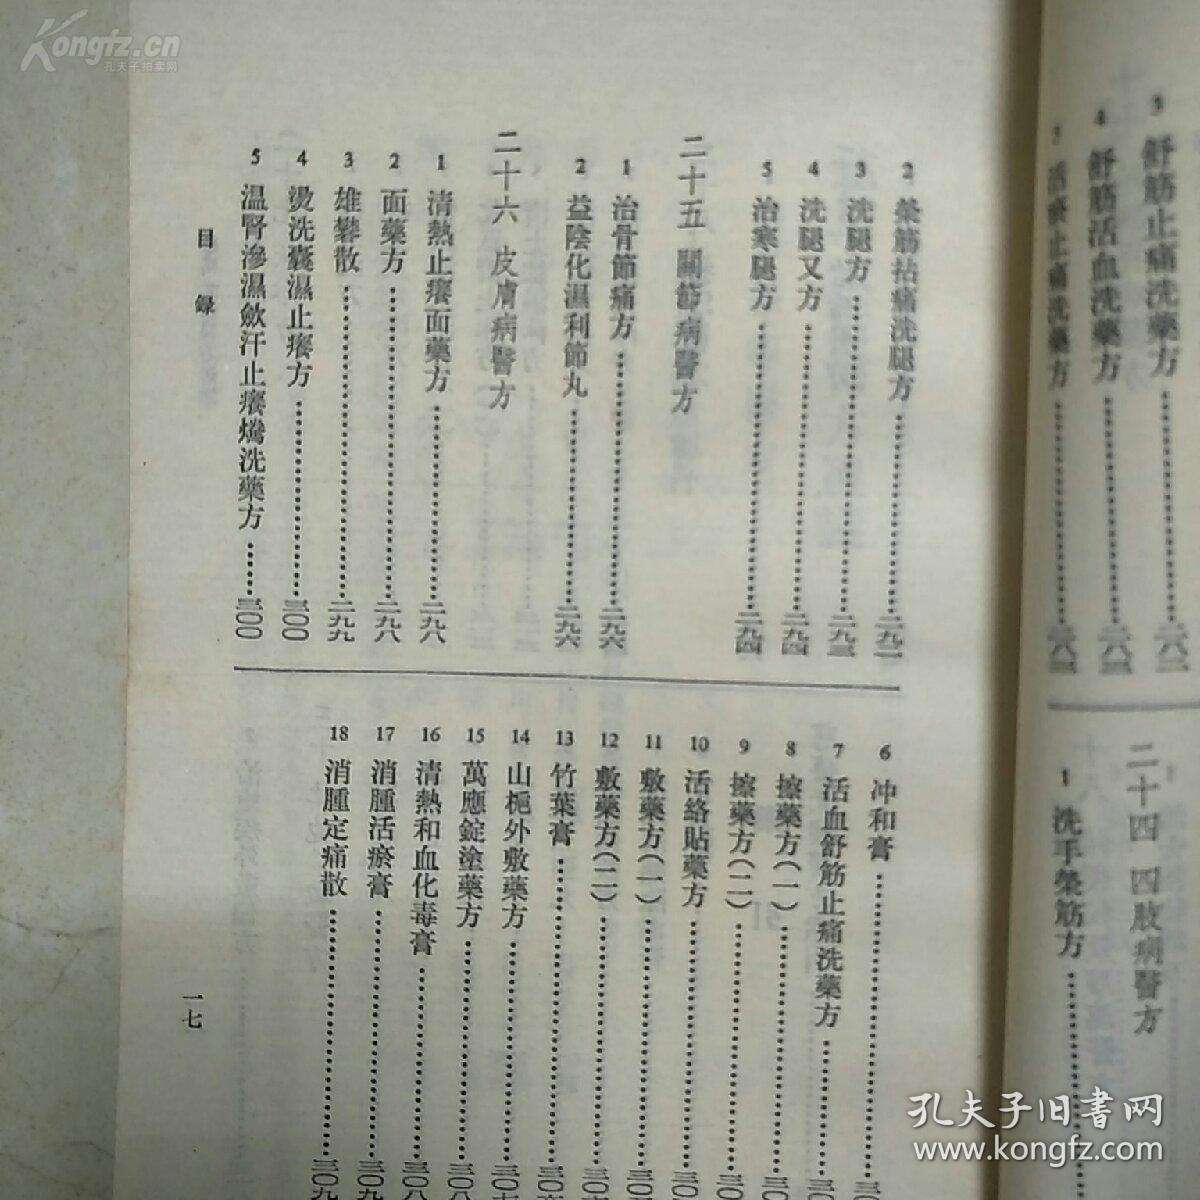 3 舒筋止痛洗藥方
4 舒筋活血洗藥方
活瘀止痛洗藥方
二十四 四肢病醫方
1 洗手榮筋方
2 榮筋拈痛洗腿方……二九二
3 洗腿方……二九三
4 洗腿又方……二九四
5 治寒腿方……二九四
二十五 關節病醫方
1 治骨節痛方……二九六
2 益陰化濕利節丸……二九六
二十六 皮膚病醫方
1 清熱止癢面藥方……二九八
2 面藥方……二九八
3 雄礬散……二九九
4 燙洗囊濕止癢方……三〇〇
5 溫腎滲濕斂汗止癢㷟洗藥方……三〇〇
6 冲和膏
7 活血舒筋止痛洗藥方
8 擦藥方(一)
9 擦藥方(二)
10 活絡貼藥方
11 敷藥方(一)
12 敷藥方(二)
13 竹葉膏
14 山梔外敷藥方
15 萬應錠塗藥方
16 清熱和血化毒膏
17 消腫活瘀膏
18 消腫定痛散
目錄
一七
Kongfz.cn
孔夫子拍卖网
孔夫子旧书网
www.kongfz.com